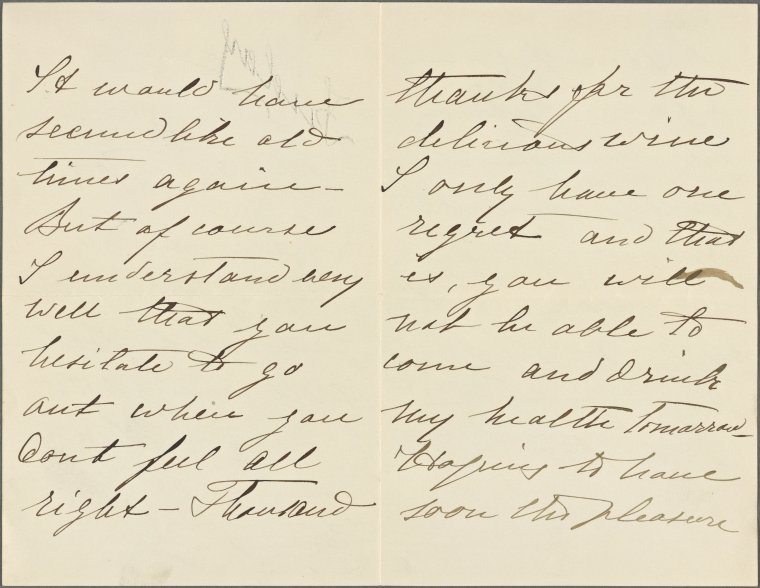 It would have
seemed like old
times again –
But of course
I understand very
well that you
hesitate to go
out when you
dont feel all
right – Thousand
thanks for the
delicious wine
I only have one
regret and that
is, you will
not be able to
come and drink
my health tomorrow –
Hoping to have
soon the pleasure